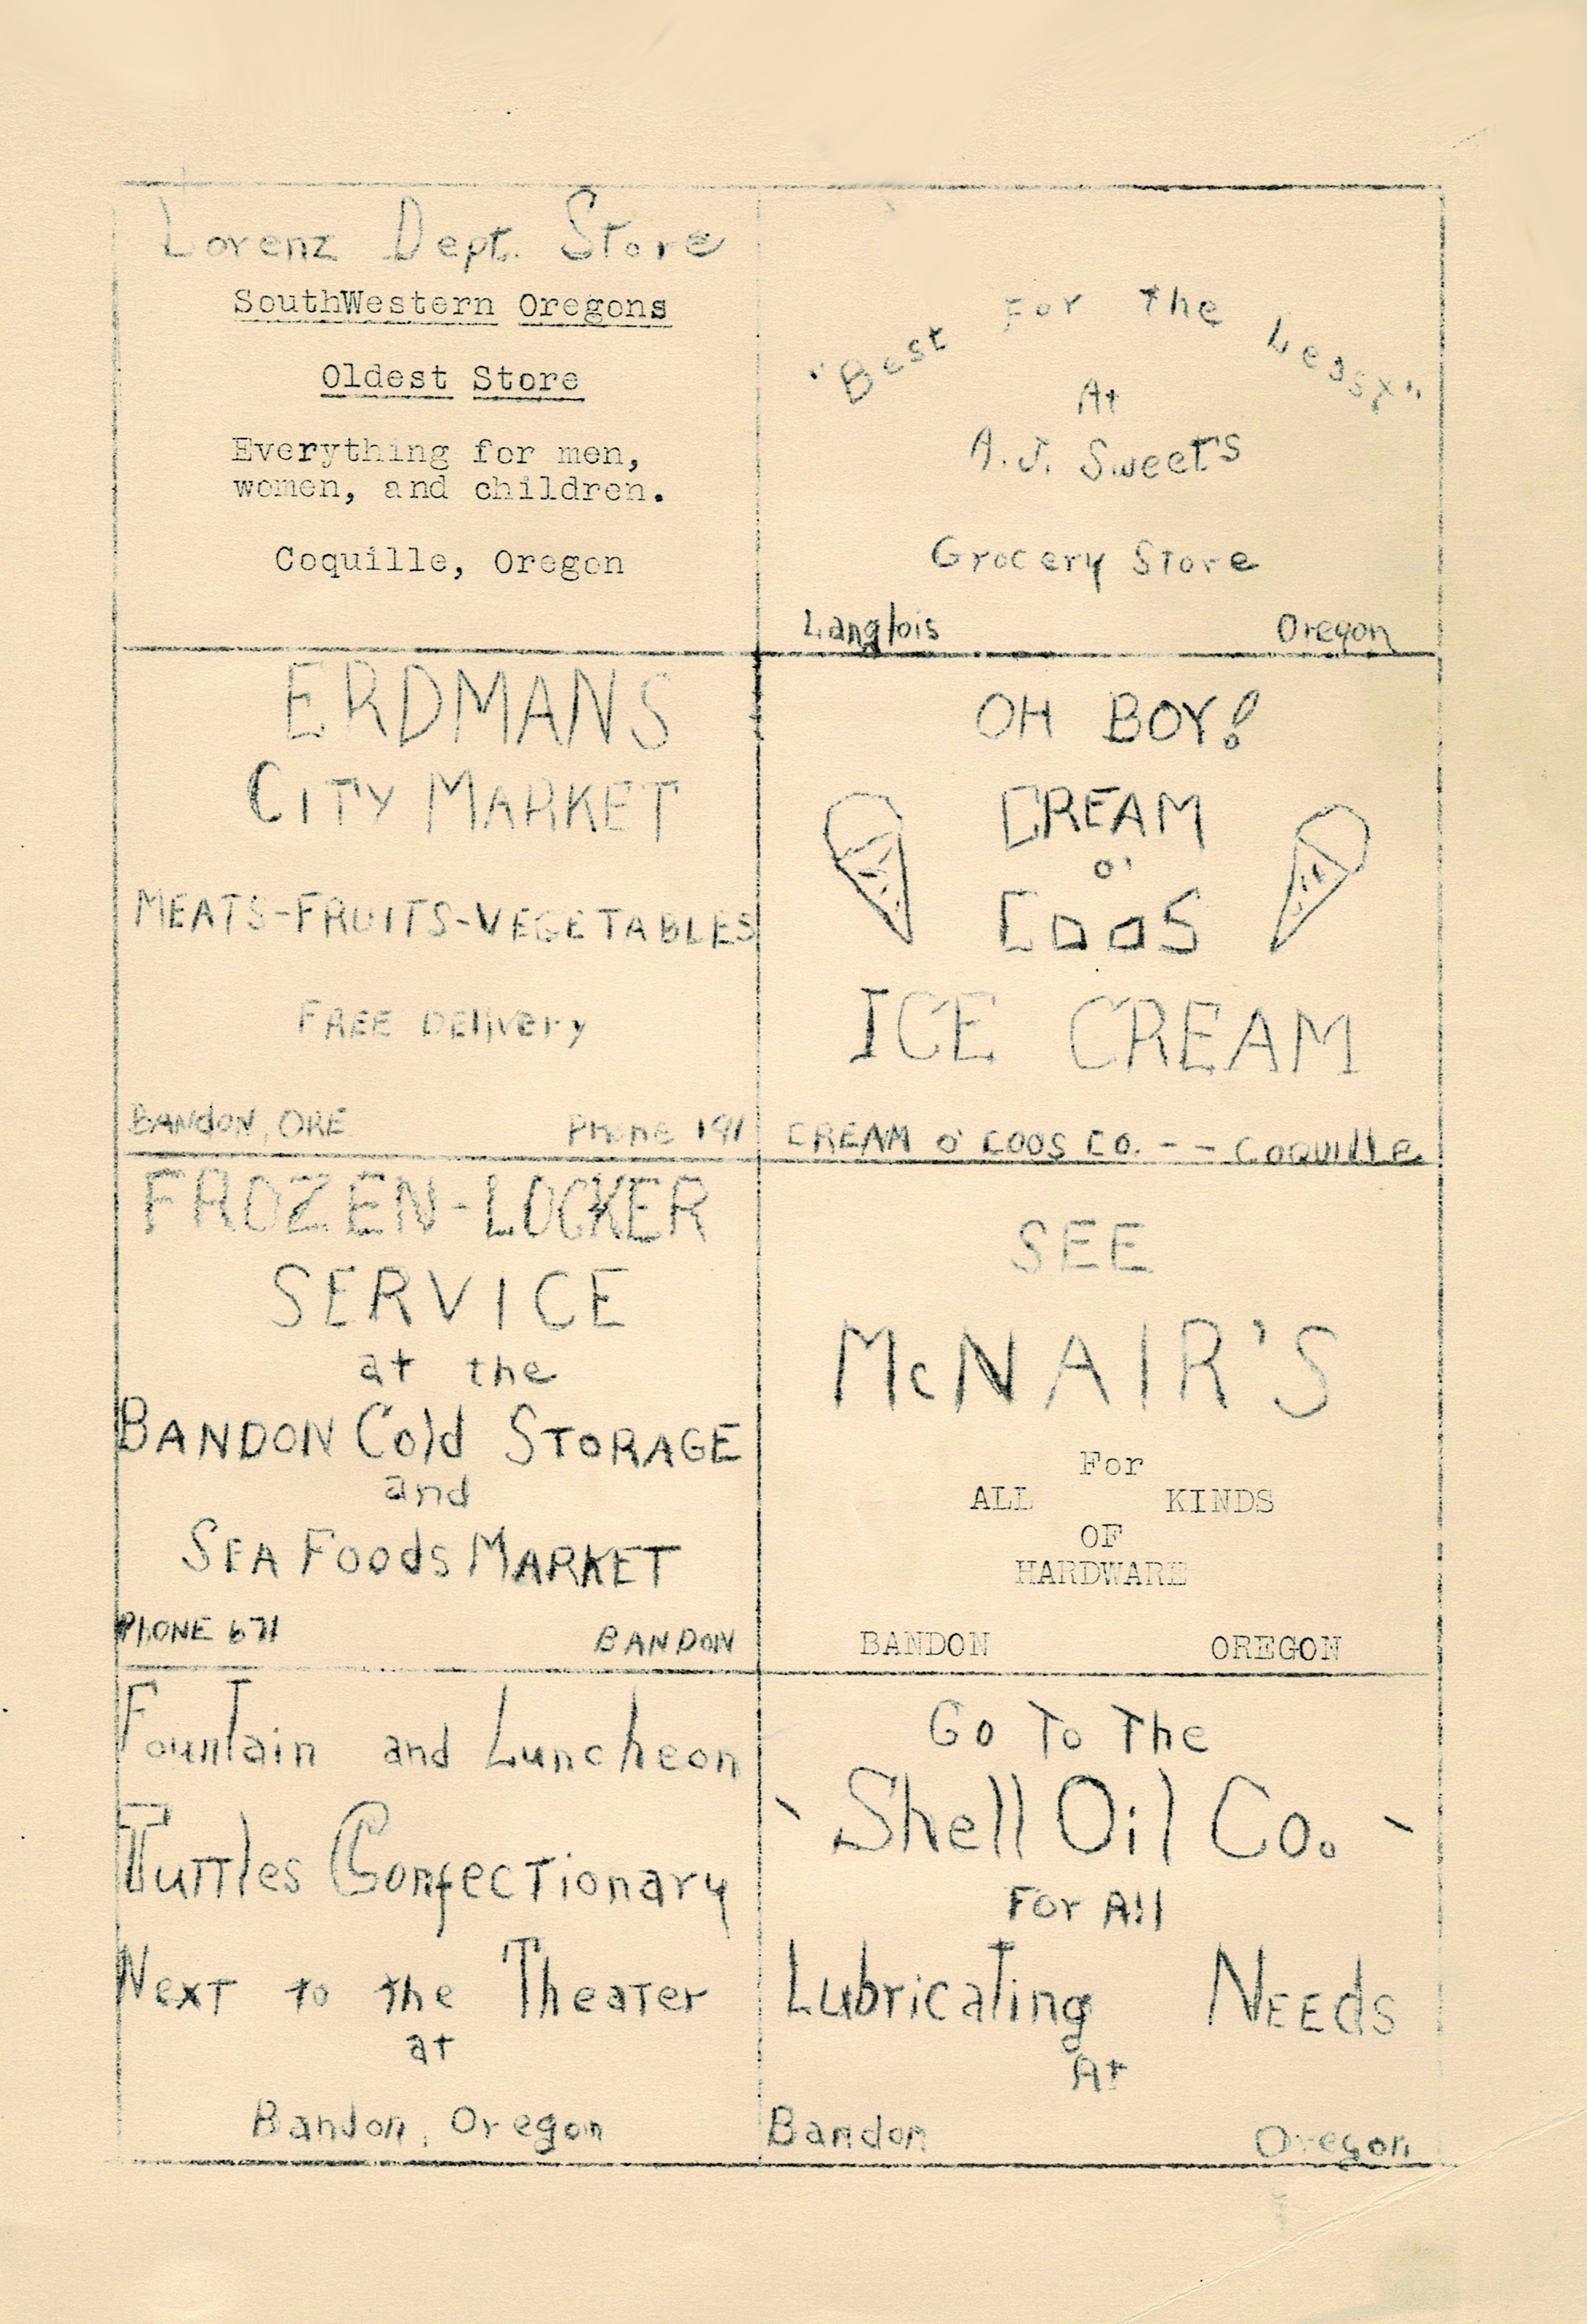 Lorenz Dept. Store
SouthWestern Oregons
Oldest Store
Everything for men,
women, and children.
Coquille, Oregon
"Best For The Least"
At
A.J. Sweet's
Grocery Store
Langlois Oregon
ERDMANS
CITY MARKET
MEATS-FRUITS-VEGETABLES
FREE DElivery
BANdON, ORE Phone 191
OH BOY!
CREAM
O'
COOS
ICE CREAM
CREAM O' COOS CO. - - COQUIlle
FROZEN-LOCKER
SERVICE
at the
BANDON Cold STORAGE
and
SEA FoodS MARKET
PhONE 671 BANDON
SEE
McNAIR'S
For
ALL KINDS
OF
HARDWARE
BANDON OREGON
Fountain and Luncheon
Tuttles Confectionary
Next to the Theater
at
Bandon, Oregon
Go To The
Shell Oil Co.
For All
Lubricating NEEdS
At
Bandon Oregon